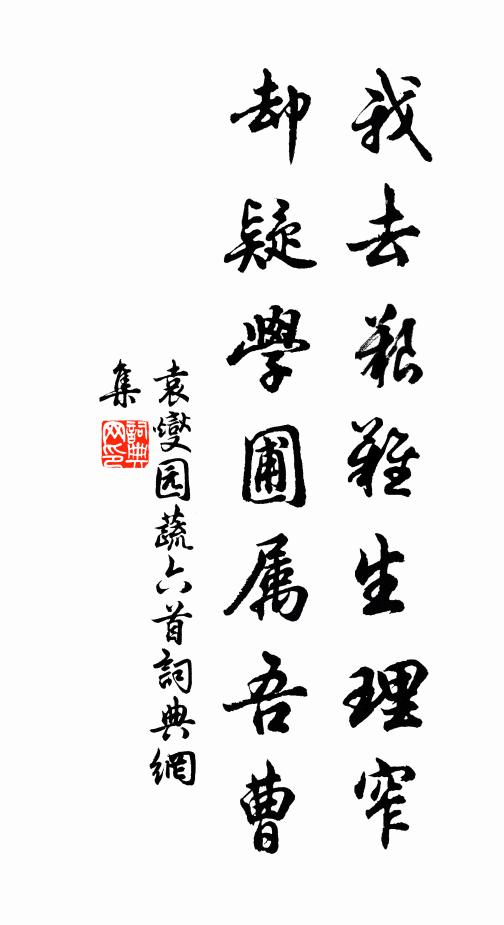 我去艱難生理窄
却疑學圃属吾曹
袁燮园蔬六首詞典網
集
詞典网印